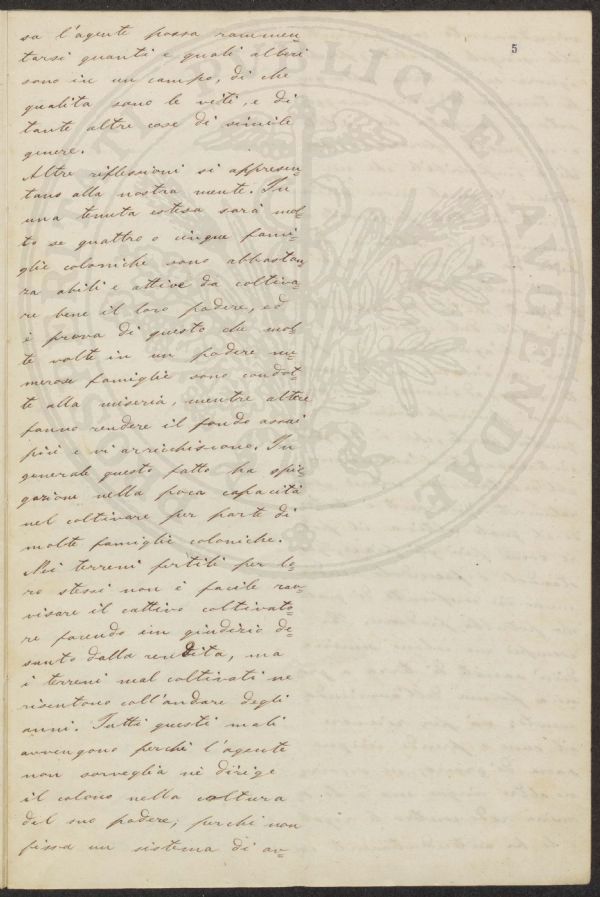 5
sa l'agente possa rammen-
tarsi quanti e quali alberi
sono in un campo, di che
qualità sono le viti, e di
tante altre cose di simile
genere.
Altre riflessioni si appresen-
tano alla nostra mente. In
una tenuta estesa sarà mol-
to se quattro o cinque fami-
glie coloniche sono abbastan-
za abili e attive da coltiva-
re bene il loro podere, ed
è prova di questo che mol-
te volte in un podere nu-
merose famiglie sono condot-
te alla miseria, mentre altre
fanno rendere il fondo assai
più e vi arricchiscono. In
generale questo fatto ha spie-
gazione nella poca capacità
nel coltivare per parte di
molte famiglie coloniche.
Nei terreni fertili per lo-
ro stessi non è facile rav-
visare il cattivo coltivato-
re facendo un giudizio de-
sunto dalla rendita, ma
i terreni mal coltivati ne
risentono coll'andare degli
anni. Tutti questi mali
avvengono perché l'agente
non sorveglia nè dirige
il colono nella coltura
del suo podere; perché non
fissa un sistema di av-